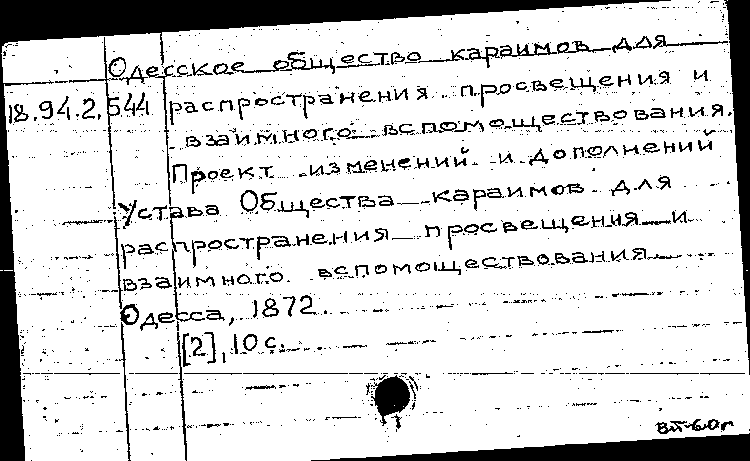 Одесское общество караимов для
18.94.2.544 распространения просвещения и
взаимного вспомоществования.
Проект изменений и дополнений
Устава Общества караимов для
распространения просвещения и
взаимного вспомоществования
Одесса, 1872.
[2], 10 с.